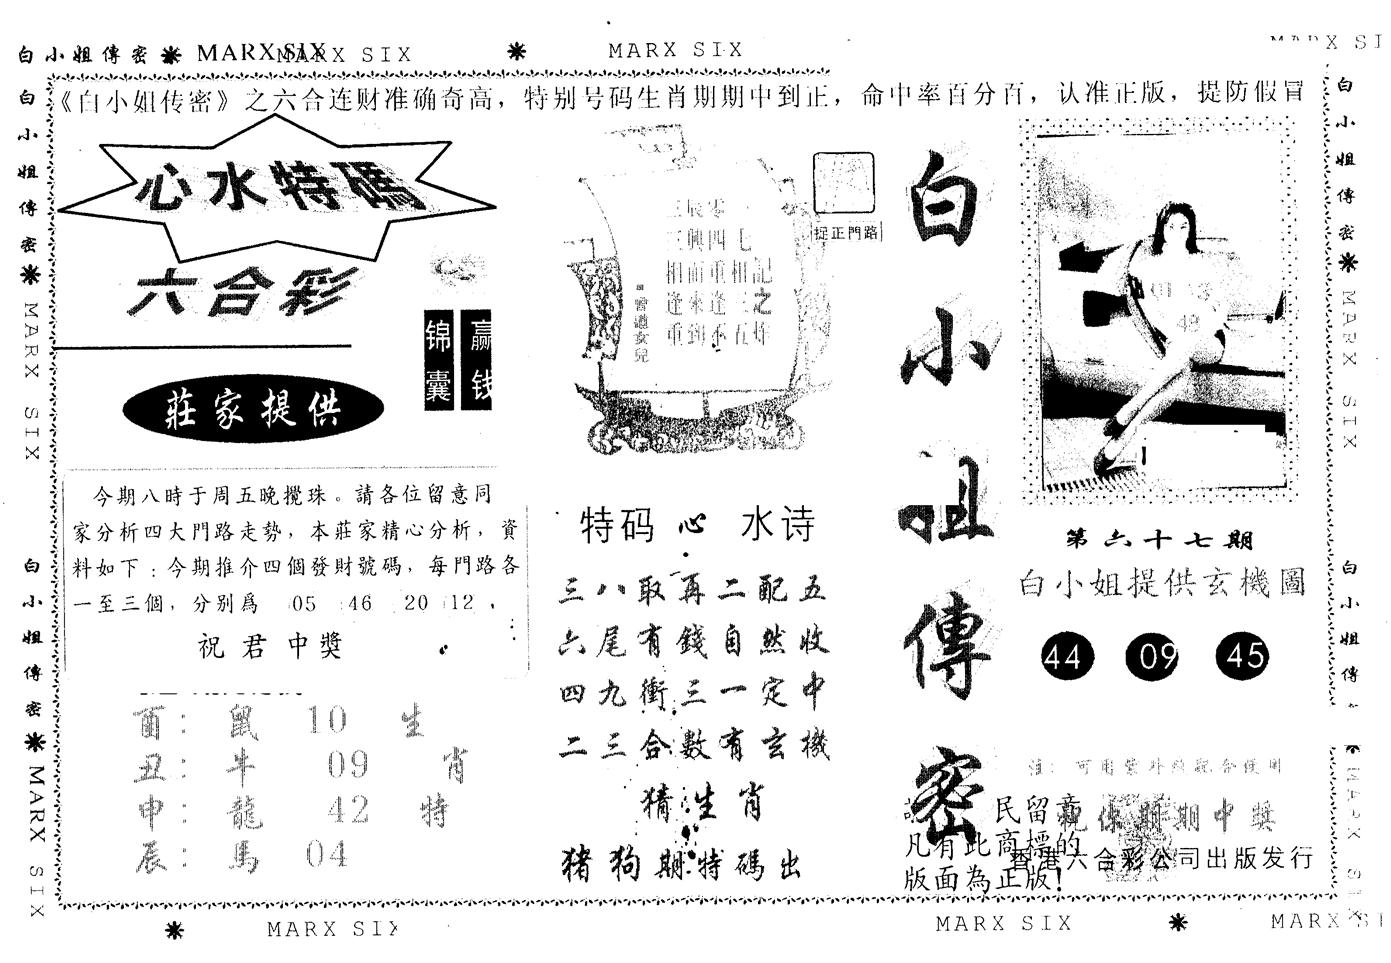 白小姐傳密 MARX SIX MARX SIX MARX SIX
《白小姐传密》之六合连财准确奇高，特别号码生肖期期中到正，命中率百分百，认准正版，提防假冒
心水特碼
六合彩
锦囊
赢钱
莊家提供
今期八時于周五晚攪珠。請各位留意同
家分析四大門路走勢，本莊家精心分析，資
料如下：今期推介四個發財號碼，每門路各
一至三個，分别爲 05 46 20 12 .
祝君中獎
酉： 鼠 10 生
丑： 牛 09 肖
申： 龍 42 特
辰： 馬 04
捉正門路
三辰零
三興四七
相而重相記
逢來逢二之
重到不五炸
曾道女兒
特码 心 水诗
三八取再二配五
六尾有錢自然收
四九衝三一定中
二三合數有玄機
猜生肖
猪狗期特碼出
白小姐傳密
01 13
49
第六十七期
白小姐提供玄機圖
44 09 45
注：可用紫外線配合使用
民留意
祝保期期中獎
凡有此商標的
香港六合彩公司出版发行
版面為正版！
白小姐傳密 MARX SIX
白小姐傳密 MARX SIX
白小姐傳密 MARX SIX
白小姐傳 MARX SIX
MARX SIX MARX SIX MARX SI